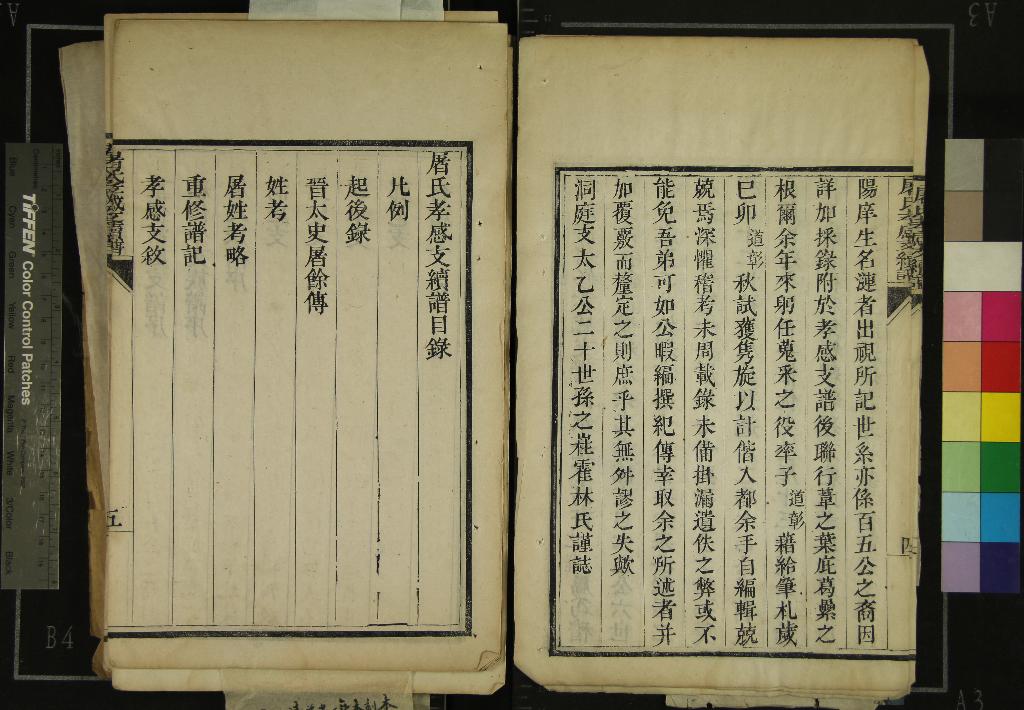 陽庠生名漣者出視所記世系亦係百五公之裔因
詳加採錄附於孝感支譜後聯行葦之葉庇葛藟之
根爾余年來躬任蒐釆之役率子道彰藉給筆札歲
已卯道彰秋試獲雋旋以計偕入都余手自編輯兢
兢焉深懼稽考未周載錄未備掛漏遺佚之弊或不
能免吾弟可如公暇編撰紀傳幸取余之所述者并
如覆覈而釐定之則庶乎其無舛謬之失歟
洞庭支太乙公二十世孫之嶐霍林氏謹誌
屠氏孝感支續譜目錄
凡例
起後錄
晉太史屠餘傳
姓考
屠姓考略
重修譜記
孝感支敘
五
四
TIFFEN Color Control Patches
Blue
Cyan
Green
Yellow
Red
Magenta
White
3/Color
Black
B4
A3
A3